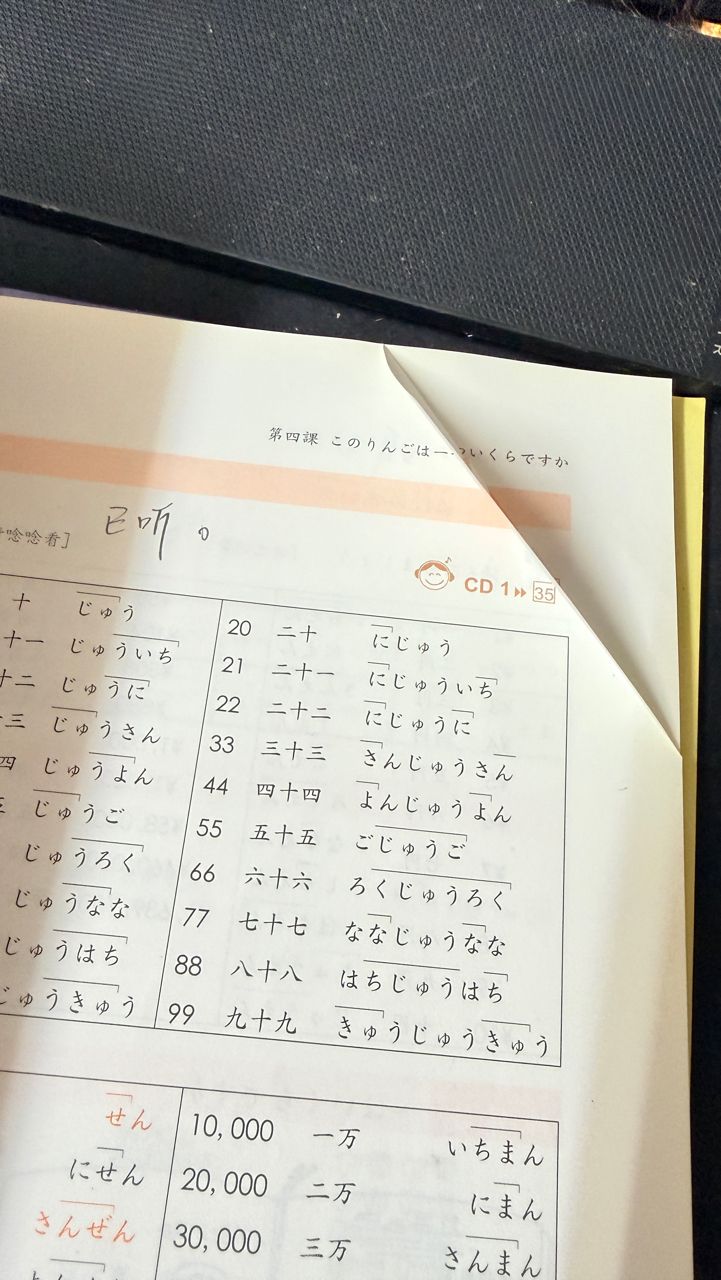 第四課 このりんごは一ついくらですか
唸唸看] 已听。
CD 1 35
十 じゅう
十一 じゅういち
十二 じゅうに
三 じゅうさん
四 じゅうよん
じゅうご
じゅうろく
じゅうなな
じゅうはち
じゅうきゅう
20 二十 にじゅう
21 二十一 にじゅういち
22 二十二 にじゅうに
33 三十三 さんじゅうさん
44 四十四 よんじゅうよん
55 五十五 ごじゅうご
66 六十六 ろくじゅうろく
77 七十七 ななじゅうなな
88 八十八 はちじゅうはち
99 九十九 きゅうじゅうきゅう
せん
にせん
さんぜん
10,000 一万 いちまん
20,000 二万 にまん
30,000 三万 さんまん